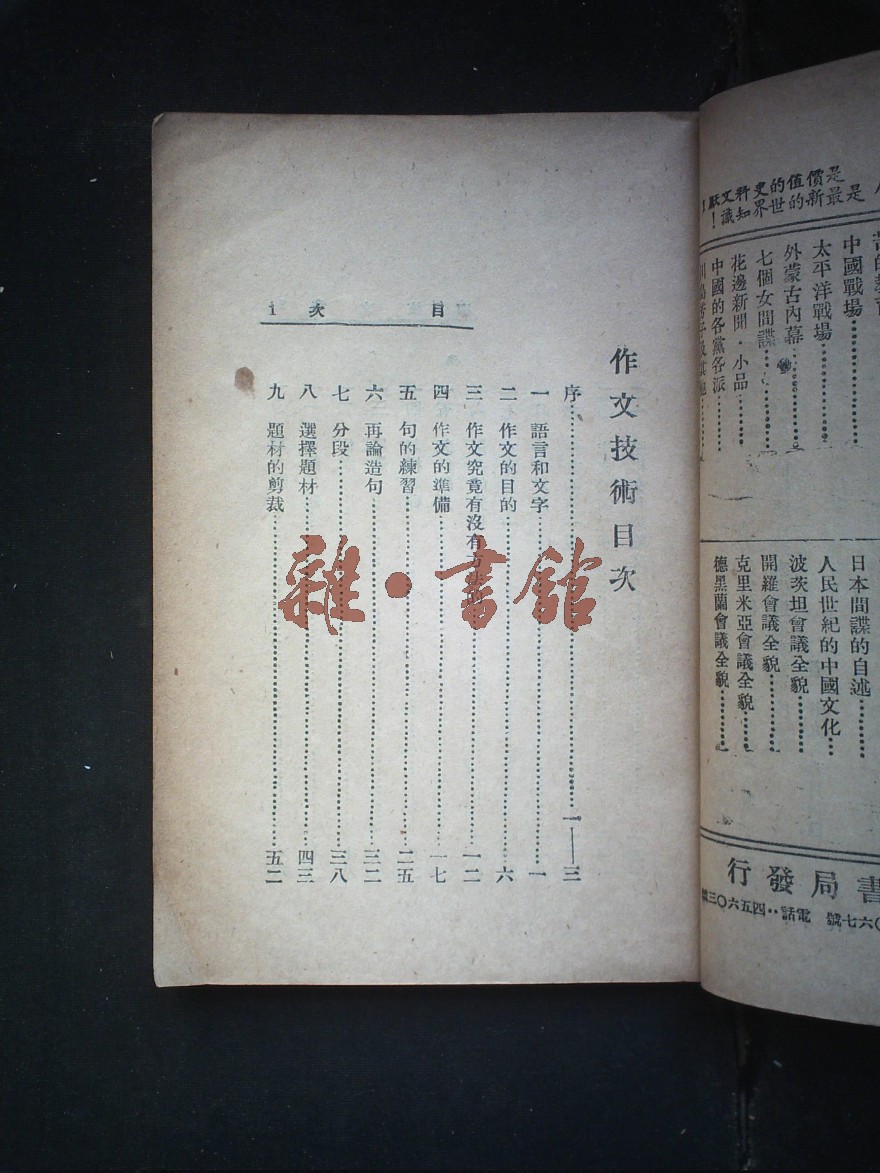 是價值的史料文獻!
是最新的世界知識!
中國戰場
太平洋戰場
外蒙古內幕
七個女間諜
花邊新聞・小品
中國的各黨各派
日本間諜的自述
人民世紀的中國文化
波茨坦會議全貌
開羅會議全貌
克里米亞會議全貌
德黑蘭會議全貌
書局發行
電話
目次 1
作文技術目次
序 一——三
一 語言和文字 一
二 作文的目的 六
三 作文究竟有沒有方法 一二
四 作文的準備 一七
五 句的練習 二五
六 再論造句 三二
七 分段 三八
八 選擇題材 四三
九 題材的剪裁 五二
雜・書館